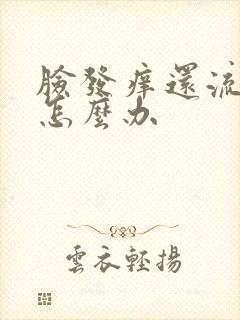 臉發痒還流
怎麼办
雲衣輕揚